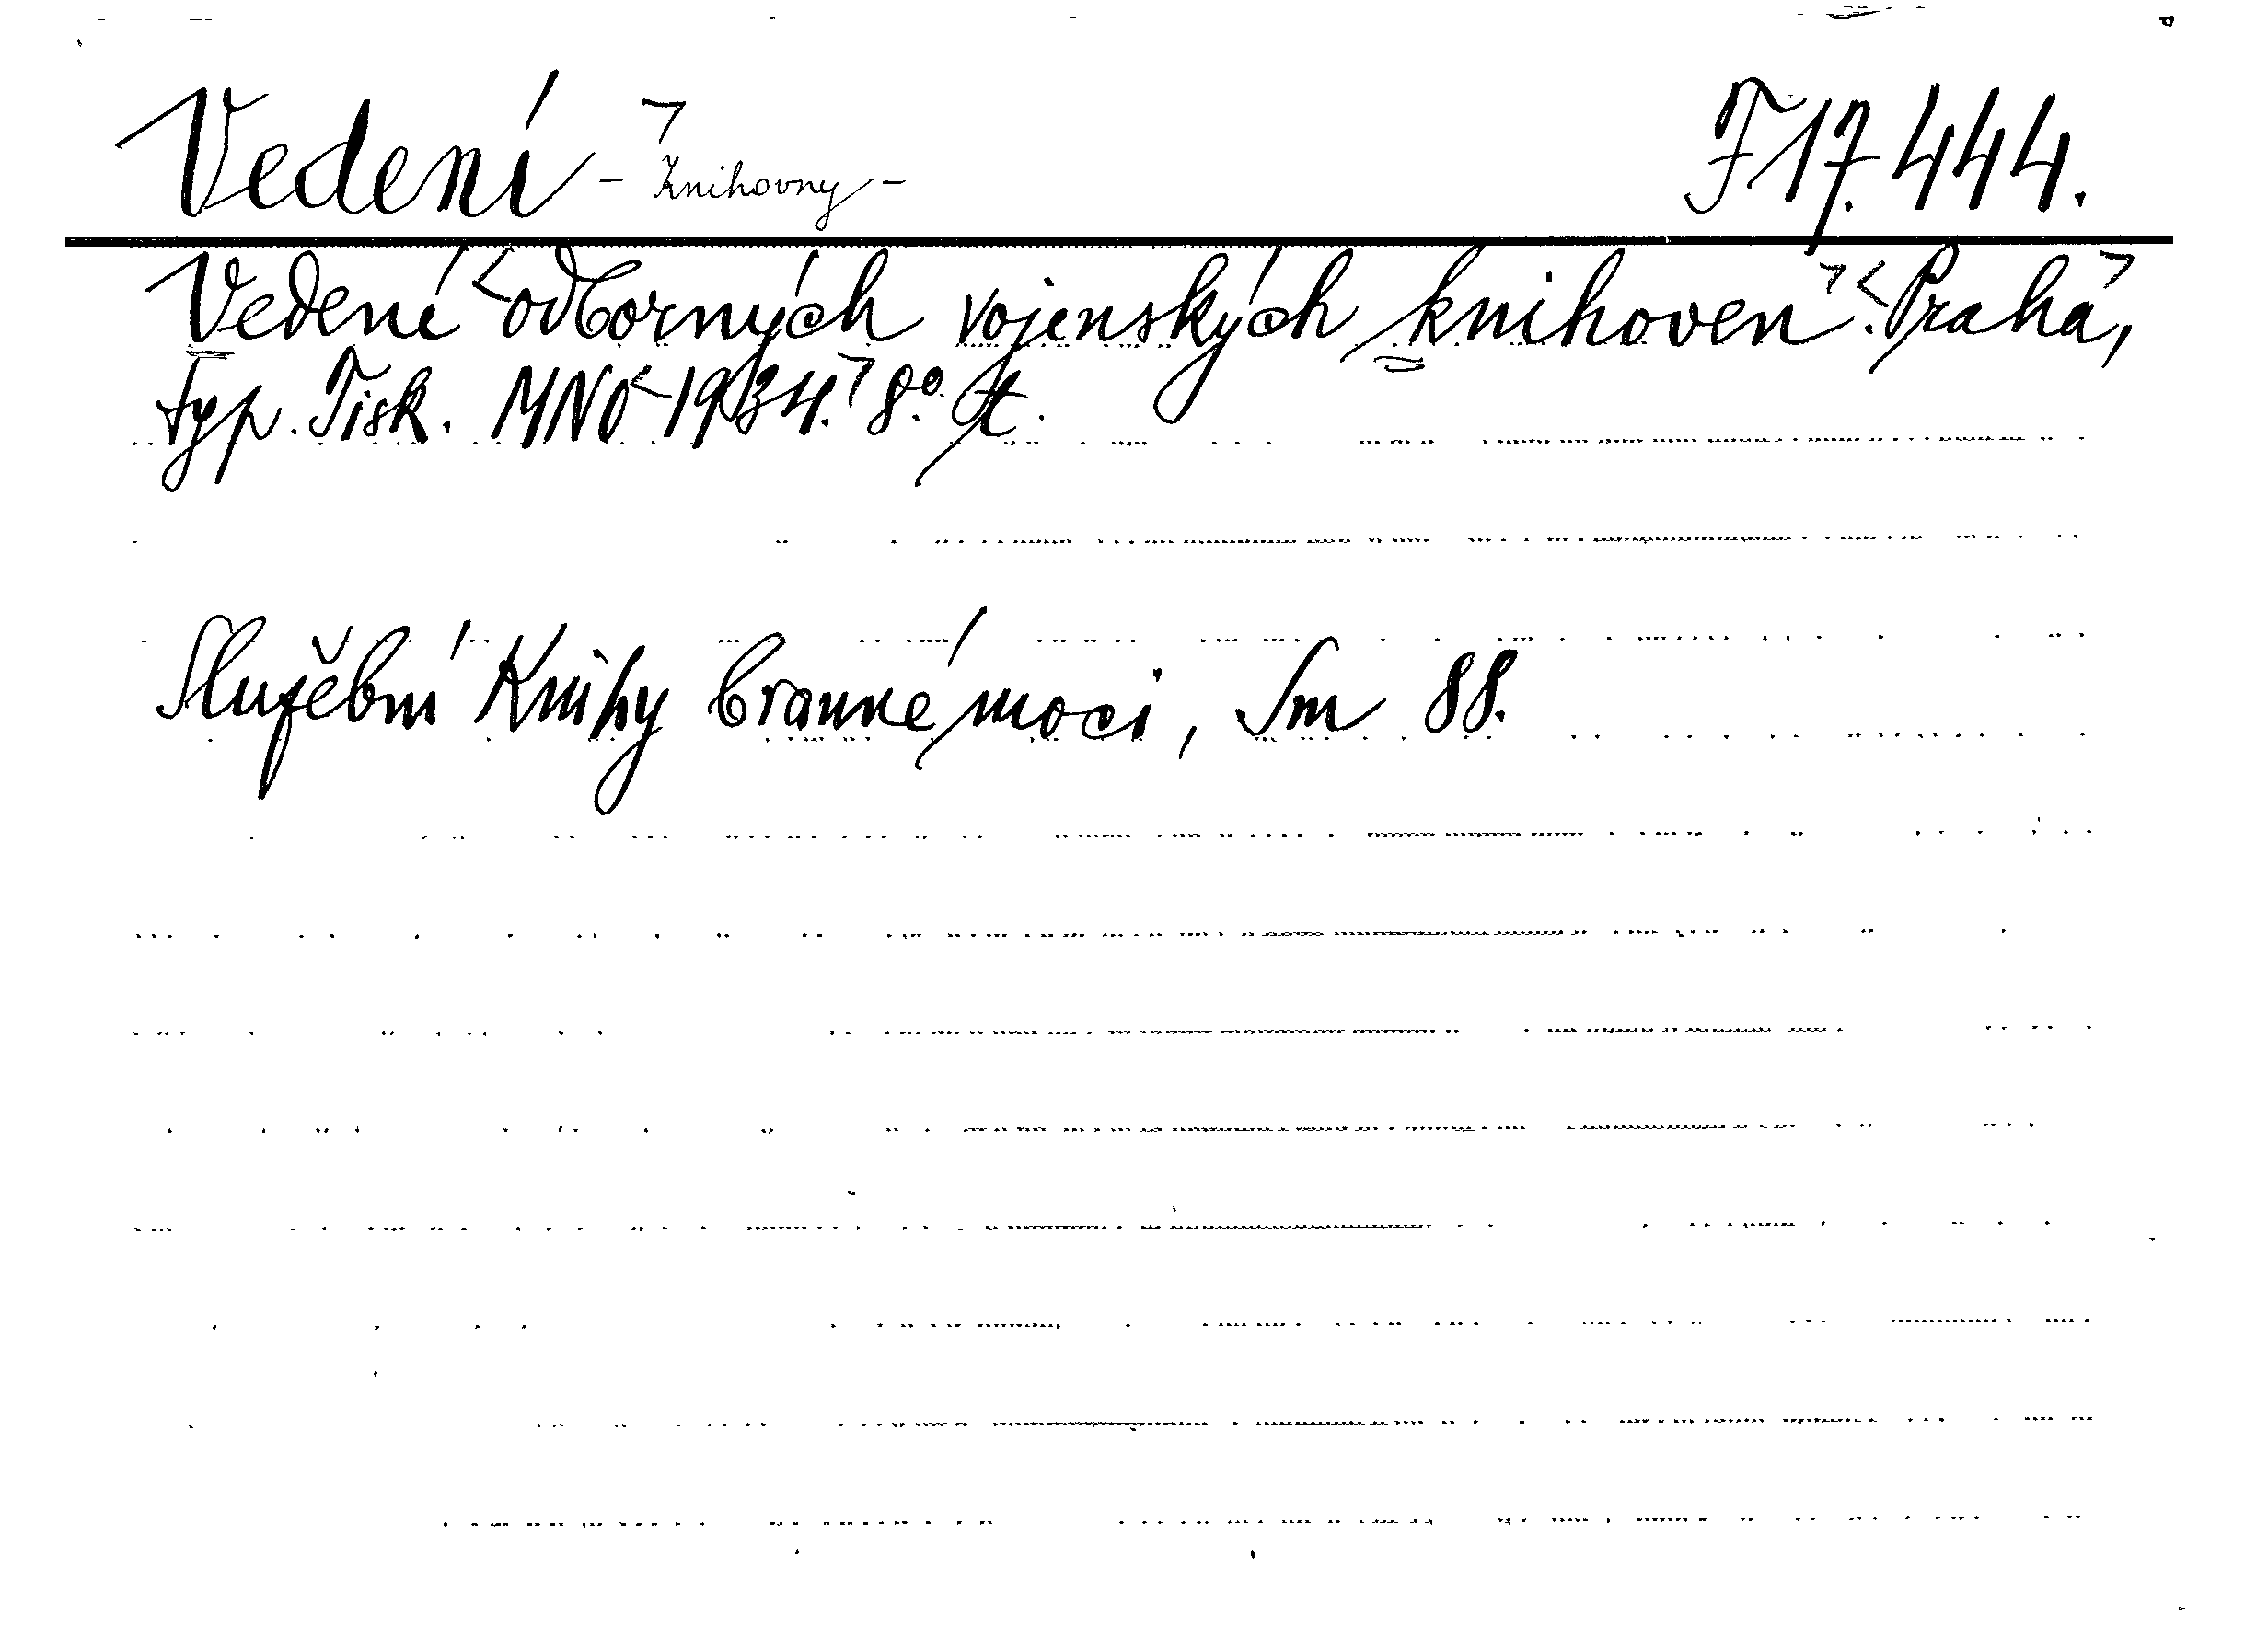 Vedení - Knihovny - F 17.444.
Vedení odborných vojenských knihoven. Praha,
Typ. Tisk. MNO 1934. 8°. t.
Služební Knihy branné moci, Sm 88.